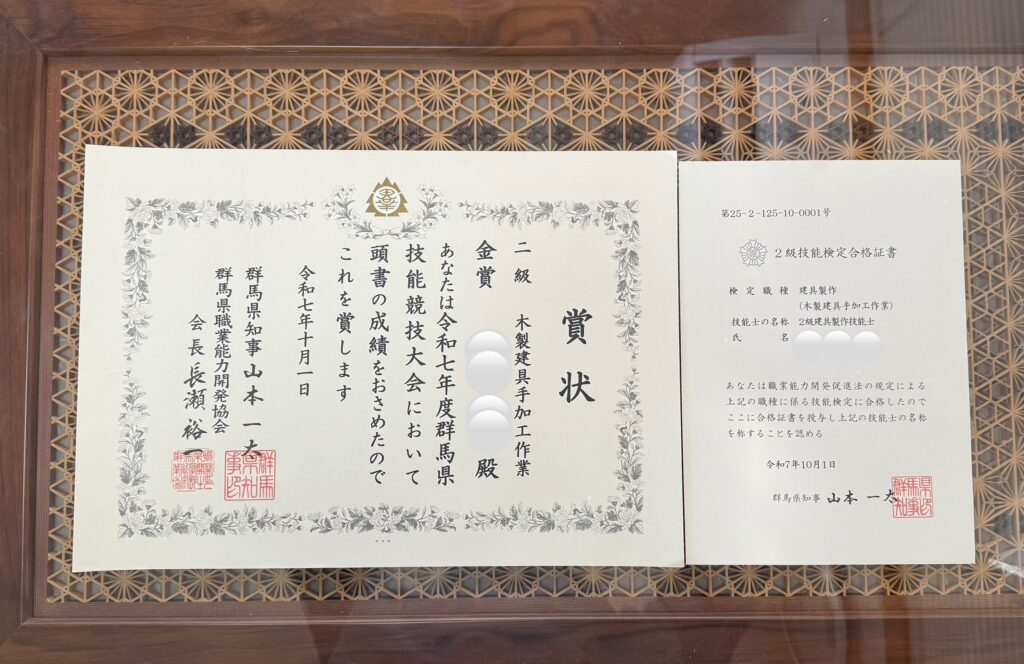 賞状
二級 木製建具手加工作業
金賞 殿
あなたは令和七年度群馬県
技能競技大会において
頭書の成績をおさめたので
これを賞します
令和七年十月一日
群馬県知事 山本 一太
群馬県職業能力開発協会
会長 長瀬 裕一
第25-2-125-10-0001号
2級技能検定合格証書
検定職種 建具製作
(木製建具手加工作業)
技能士の名称 2級建具製作技能士
氏名
あなたは職業能力開発促進法の規定による
上記の職種に係る技能検定に合格したので
ここに合格証書を授与し上記の技能士の名称
を称することを認める
令和7年10月1日
群馬県知事 山本 一太